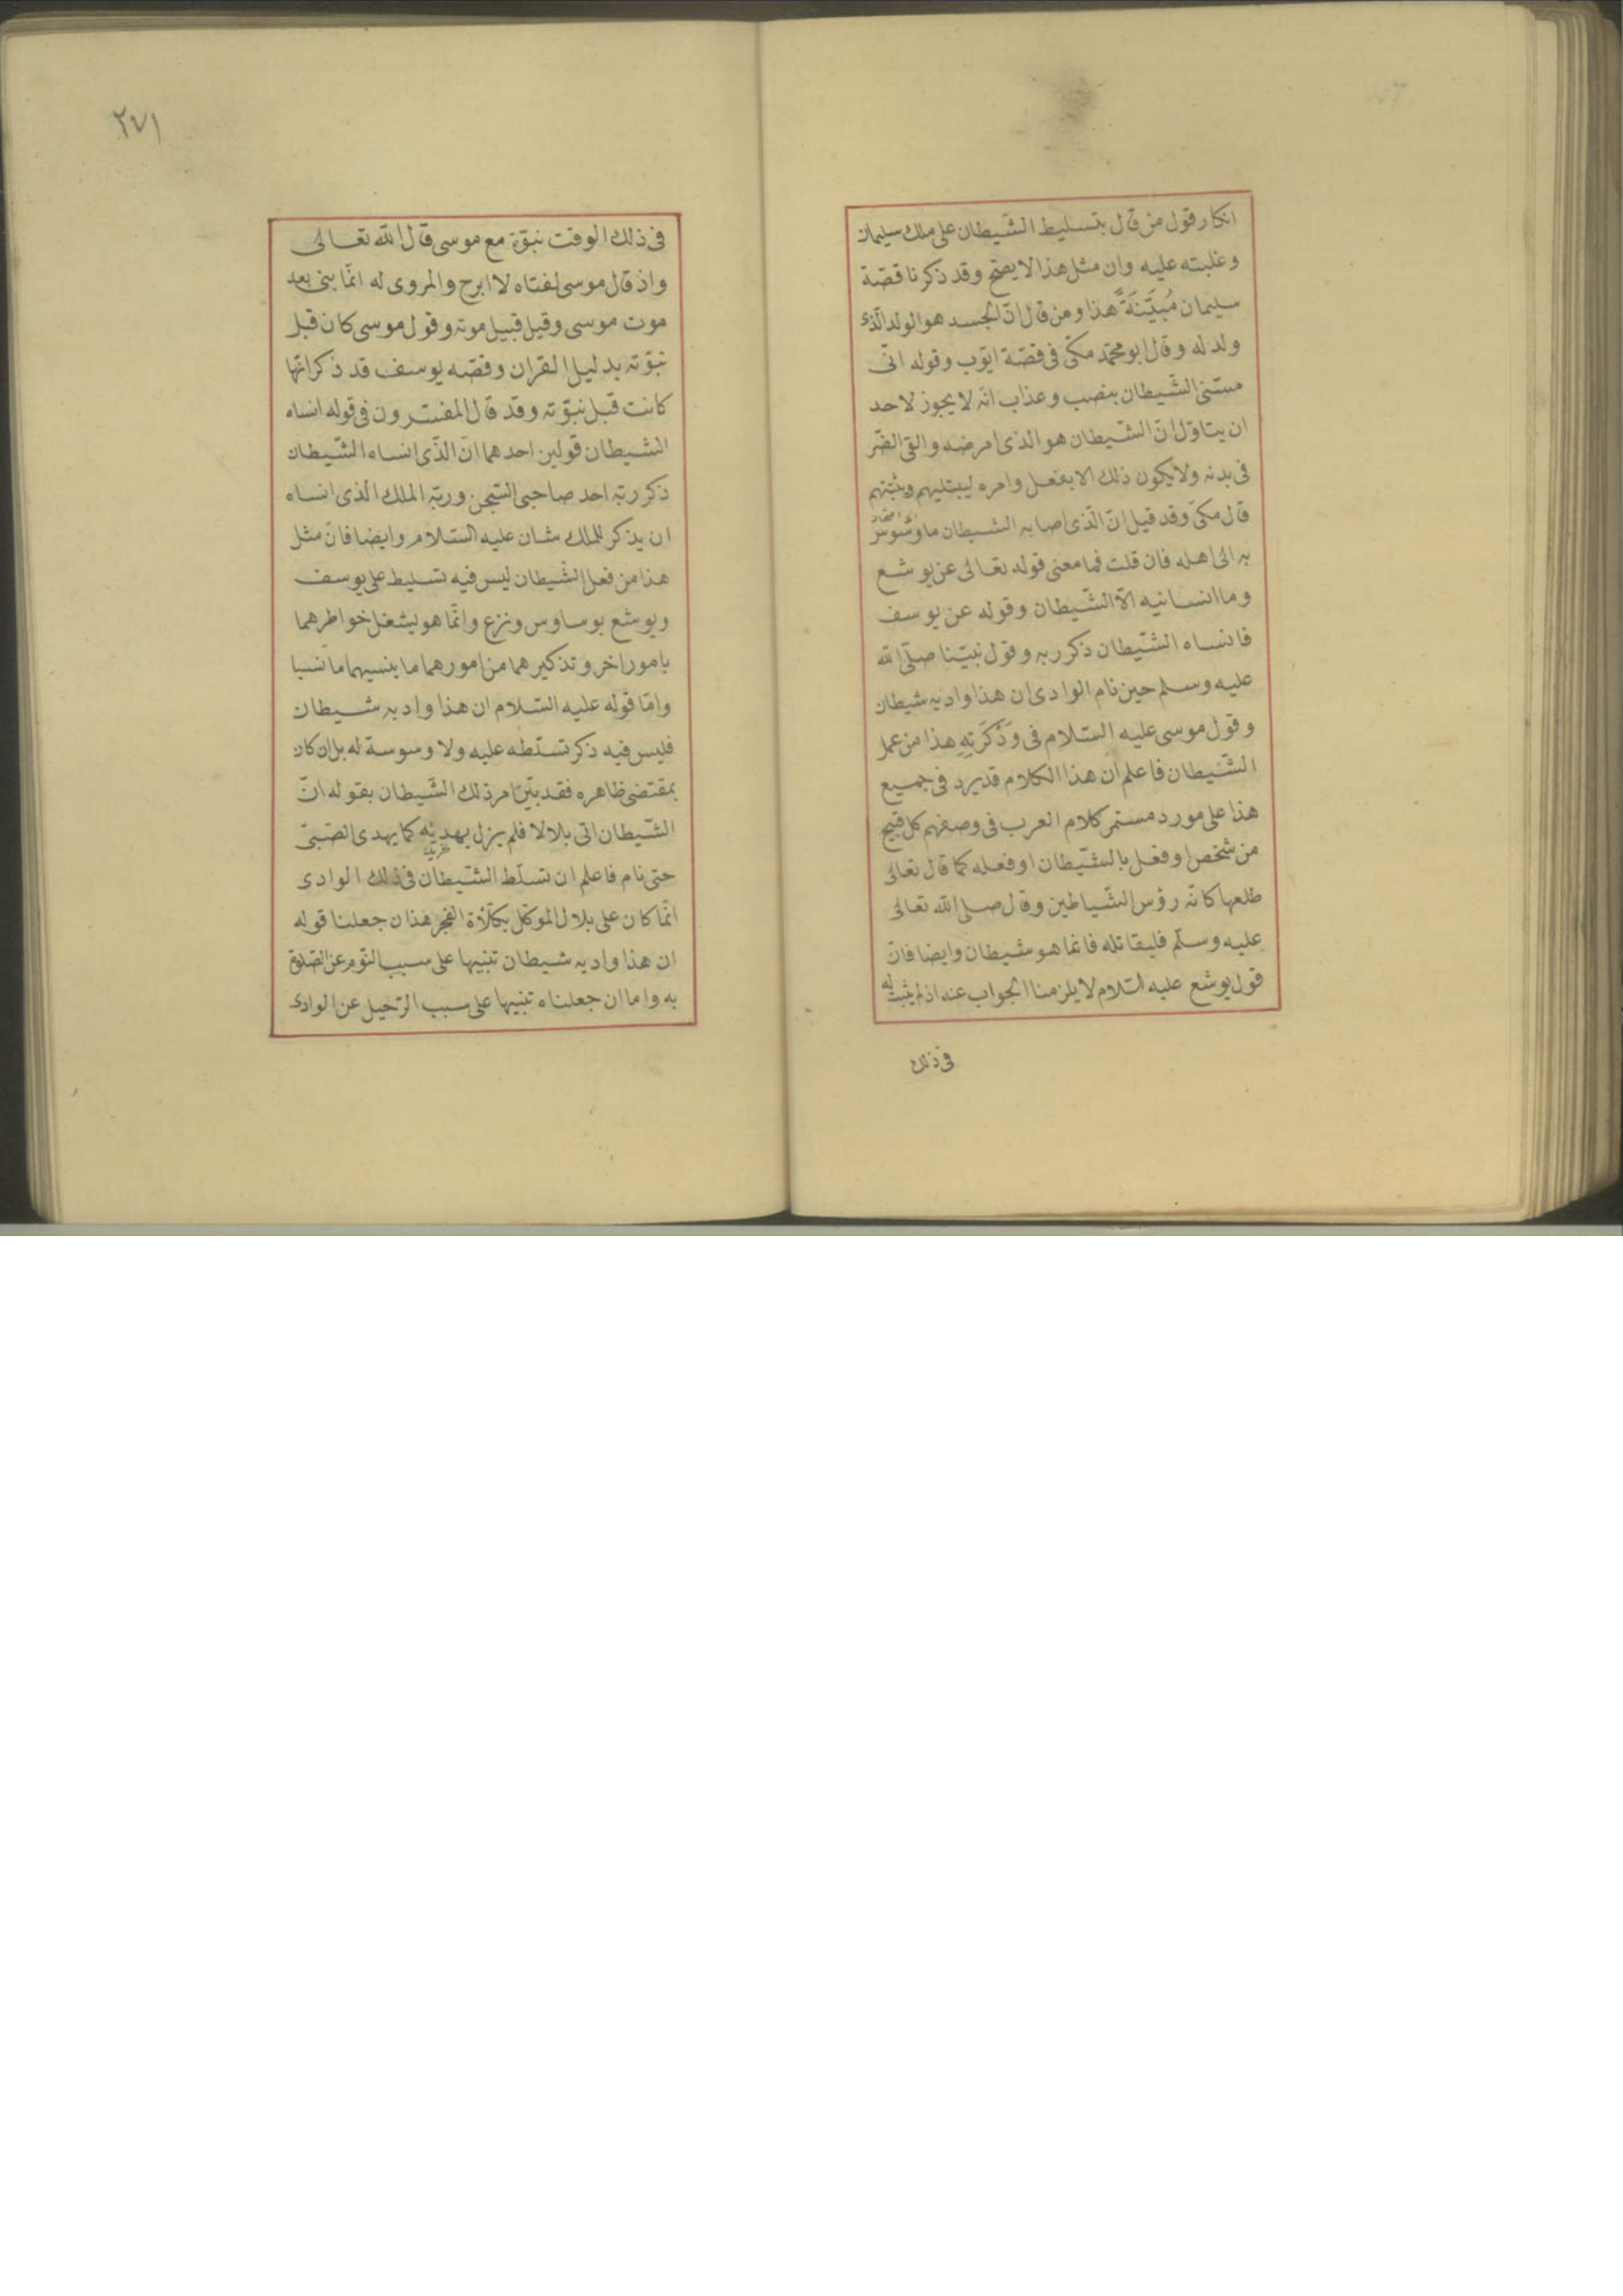 انكار قول من قال بتسليط الشّيطان على ملك سليمان
وغلبته عليه وان مثل هذا لا يصحّ وقد ذكرنا قصّة
سليمان مُبَيِّنَةً هذا ومن قال انّ الجسد هو الولد الّذى
ولد له وقال ابو محمّد مكّى فى قصّة ايّوب وقوله انّى
مسّنى الشّيطان بنصب وعذاب انّه لا يجوز لاحد
ان يتاوّل انّ الشّيطان هو الذى امرضه والقى الضّر
فى بدنه ولا يكون ذلك الا بفعل وامره ليبتليهم ويثبّتهم
قال مكىّ وقد قيل انّ الّذى اصابه الشيطان ما وسوس
به الى اهله فان قلت فما معنى قوله تعالى عن يوشع
وما انسانيه الّا الشّيطان وقوله عن يوسف
فانساه الشّيطان ذكر ربه وقول نبيّنا صلّى الله
عليه وسلم حين نام الوادى ان هذا واد به شيطان
وقول موسى عليه السّلام فى وَذَكَرَتِهِ هذا من عمل
الشّيطان فاعلم ان هذا الكلام قد يرد فى جميع
هذا على مورد مستمر كلام العرب فى وصفهم كل قبيح
من شخص او فعل بالشّيطان او فعله كما قال تعالى
طلعها كانّه رؤس الشّياطين وقال صلى الله تعالى
عليه وسلّم فليقاتله فانما هو شيطان وايضا فانّ
قول يوشع عليه السّلام لا يلزمنا الجواب عنه اذ لم يثبت له
فى ذلك
٢٧١
فى ذلك الوقت نبوّة مع موسى قال الله تعالى
واذ قال موسى لفتاه لا ابرح والمروى له انّما نبى بعد
موت موسى وقيل قبيل موته وقول موسى كان قبل
نبوّته بدليل القران وقصّه يوسف قد ذكر انّها
كانت قبل نبوّته وقد قال المفسّرون فى قوله انساه
الشيطان قولين احدهما انّ الذّى انساه الشّيطان
ذكر ربّه احد صاحبى السّجن وربّه الملك الذى انساه
ان يذكر للملك شان عليه السّلام وايضا فانّ مثل
هذا من فعل الشّيطان ليس فيه تسليط على يوسف
ويوشع بوساوس ونزع وانّما هو ليشغل خواطرهما
بامور اخر وتذكيرهما من امورهما ما ينسيهما ما نسيا
وامّا قوله عليه السّلام ان هذا واد به شيطان
فليس فيه ذكر تسلّطه عليه ولا وسوسة له بل ان كان
بمقتضى ظاهره فقد بيّن امر ذلك الشّيطان بقوله انّ
الشّيطان اتى بلالا فلم يزل يهديه كما يهدى الصّبىّ
حتى نام فاعلم ان تسلّط الشّيطان فى ذلك الوادى
انّما كان على بلال الموكّل بكلأة الفجر هذا ان جعلنا قوله
ان هذا واد به شيطان تنبيها على سبب النّوم عن الصّلوة
به واما ان جعلناه تنبيها على سبب الرّحيل عن الوادى